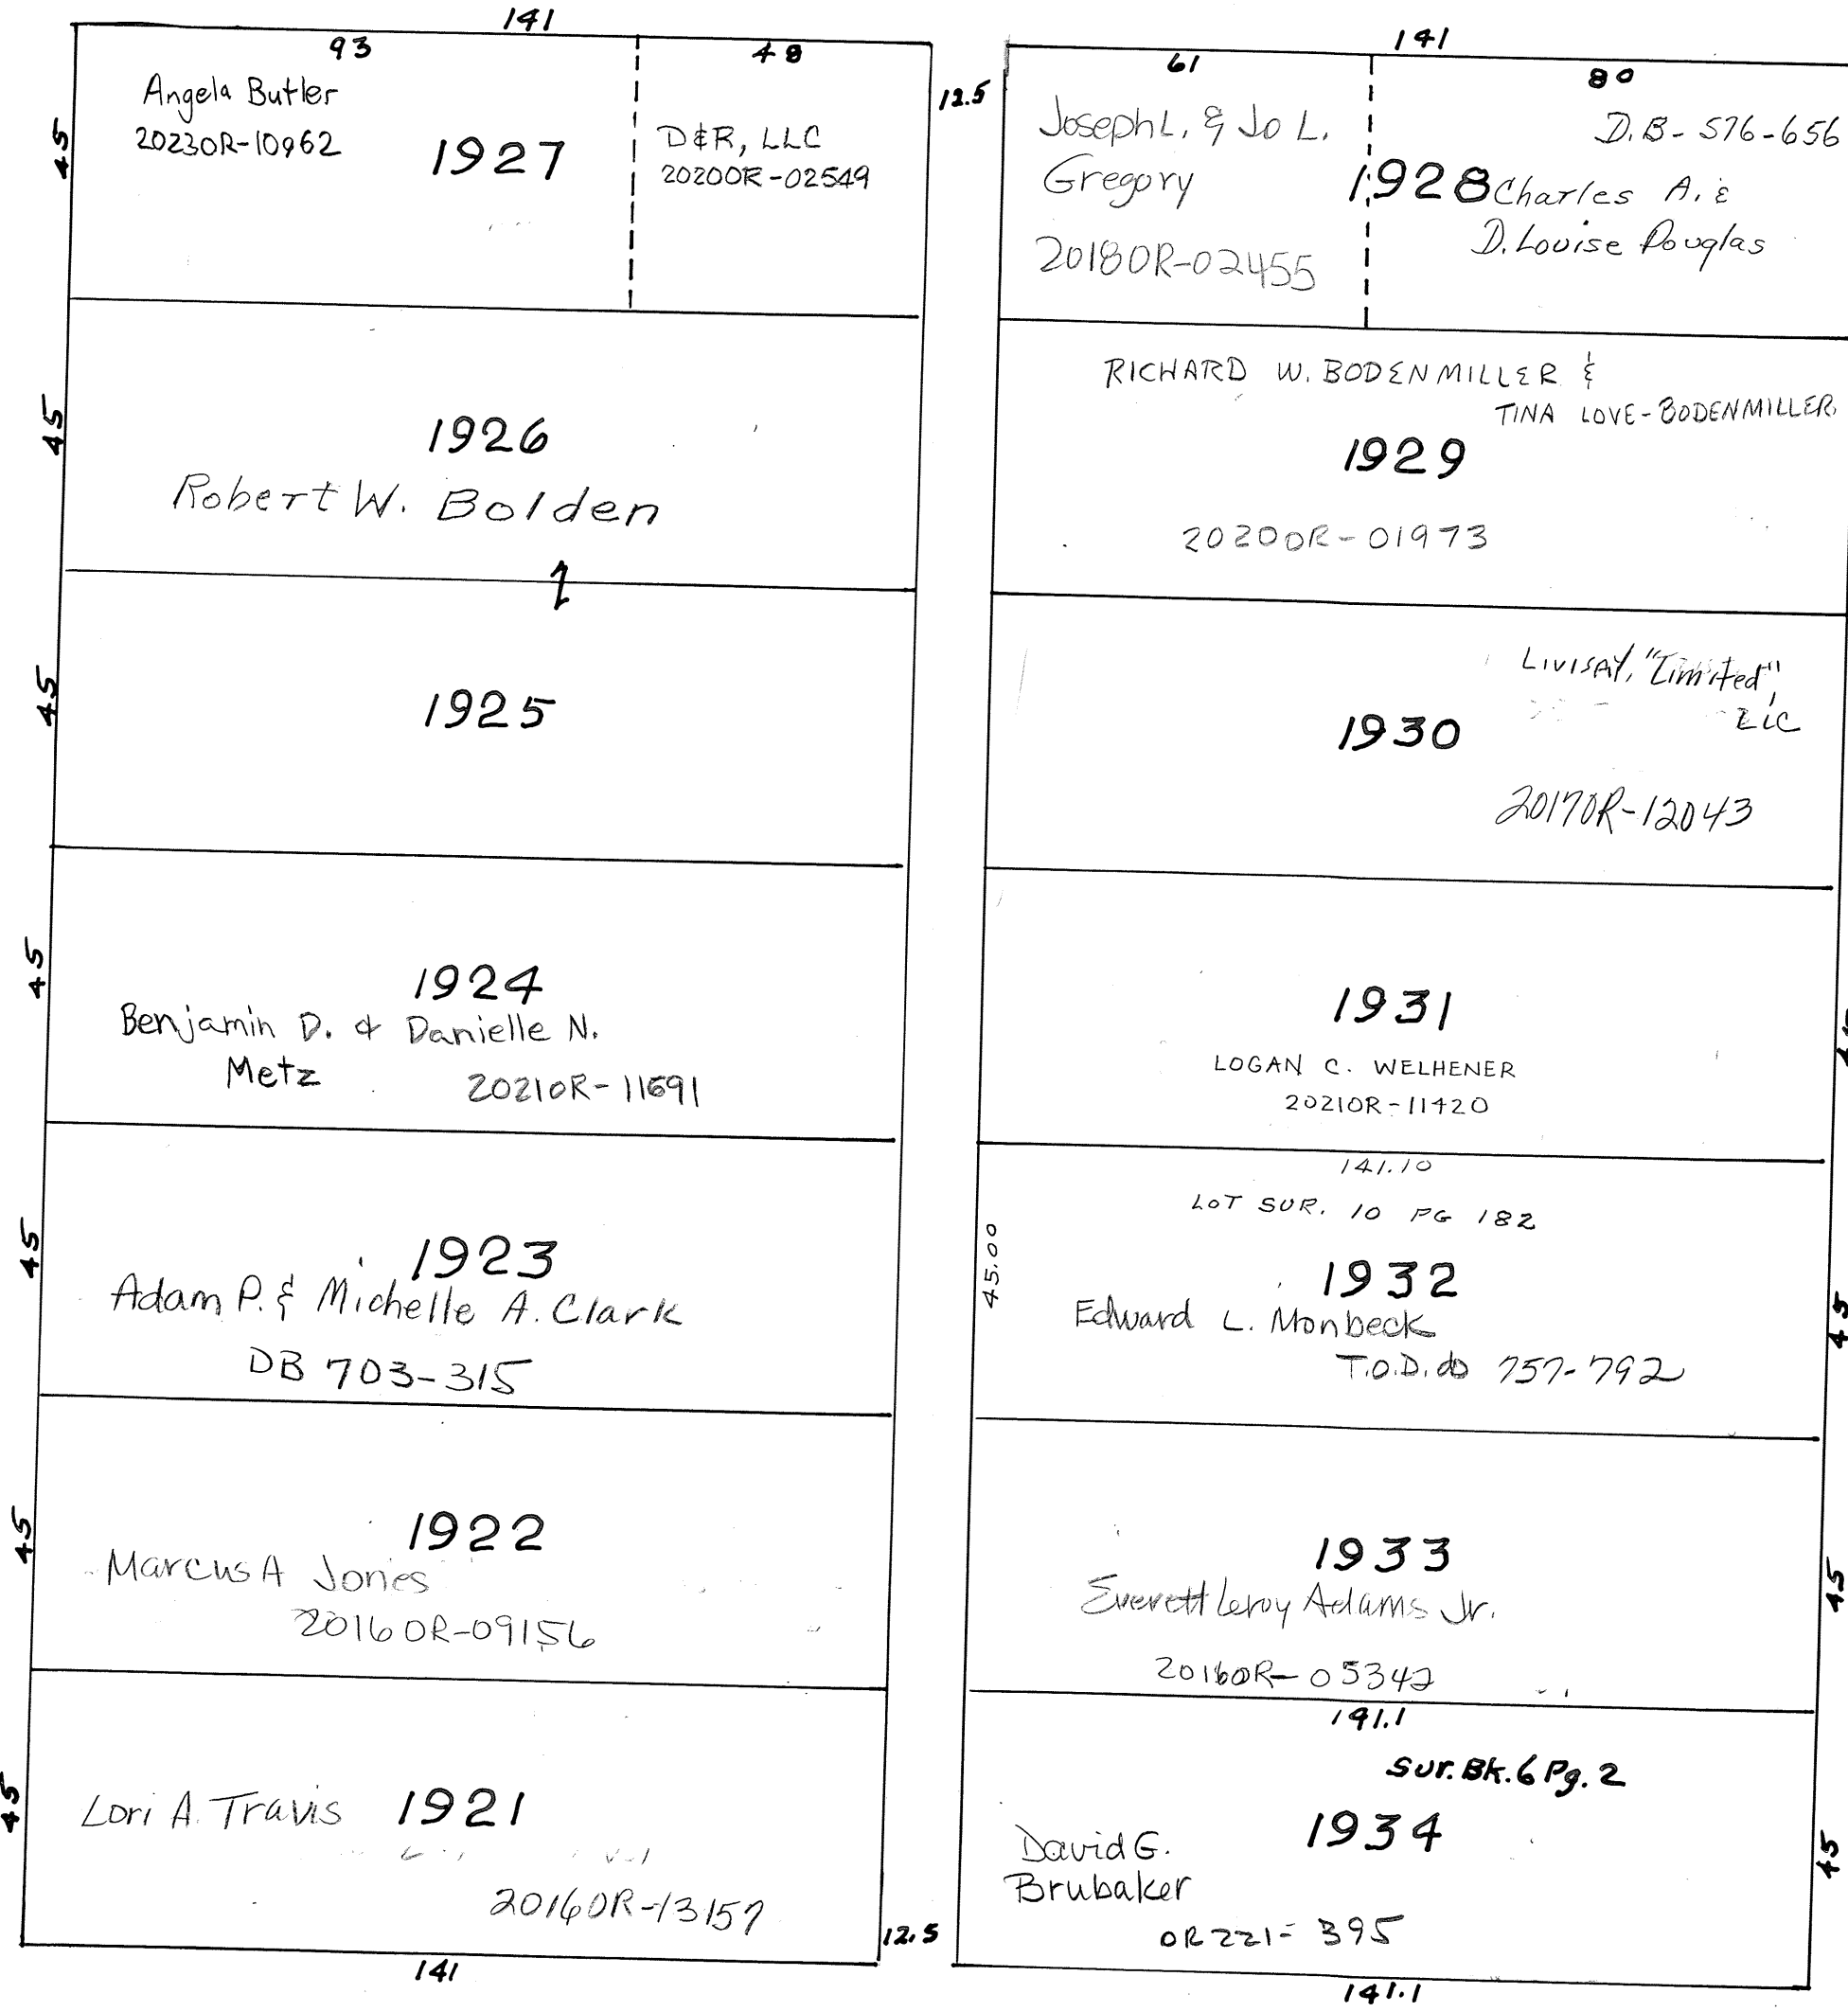 141
93
48
45
Angela Butler
2023OR-10962
1927
D&R, LLC
2020OR-02549
12.5
45
1926
Robert W. Bolden
45
1925
45
1924
Benjamin D. & Danielle N.
Metz
2021OR-11691
45
1923
Adam P. & Michelle A. Clark
DB 703-315
45
1922
Marcus A Jones
2016OR-09156
45
Lori A. Travis
1921
2016OR-13157
12.5
141
141
61
80
Joseph L. & Jo L.
Gregory
2018OR-02455
1928
D.B-576-656
Charles A. &
D. Louise Douglas
RICHARD W. BODENMILLER &
TINA LOVE-BODENMILLER
1929
2020OR-01973
LIVISAY, "Limited",
LLC
1930
2017OR-12043
1931
LOGAN C. WELHENER
2021OR-11420
141.10
LOT SUR. 10 PG 182
45.00
1932
45
Edward L. Monbeck
T.O.D. db 757-792
1933
45
Everett Leroy Adams Jr.
2016OR-05342
141.1
Sur. Bk. 6 Pg. 2
1934
45
David G.
Brubaker
OR 221-395
141.1